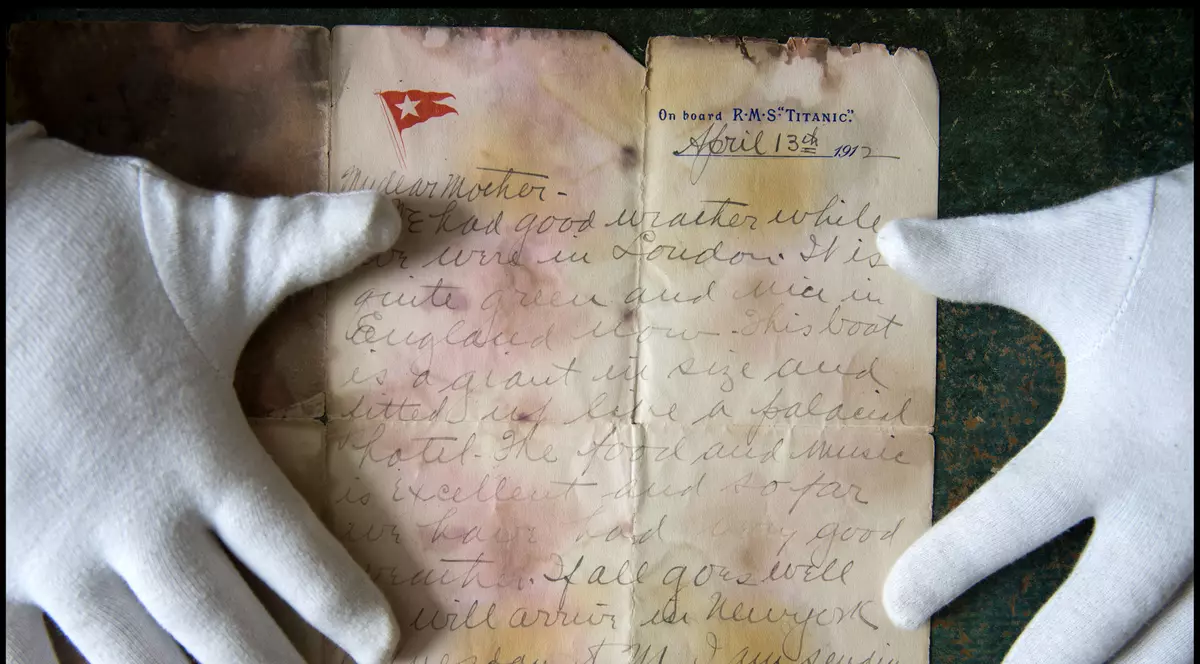 On board R·M·S "TITANIC."
April 13th 1912
My dear Mother-
had good weather while
we were in London. It is
quite green and nice in
England now. This boat
is a giant in size and
fitted up like a palacial
hotel. The food and music
is excellent and so far
we have had very good
weather. If all goes well
will arrive in New York
I am sendin